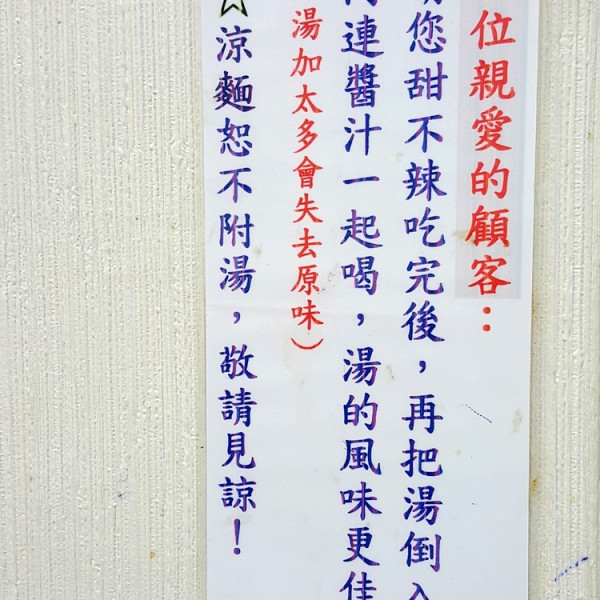 位親愛的顧客：
您甜不辣吃完後，再把湯倒入
連醬汁一起喝，湯的風味更佳
湯加太多會失去原味）
☆涼麵恕不附湯，敬請見諒！